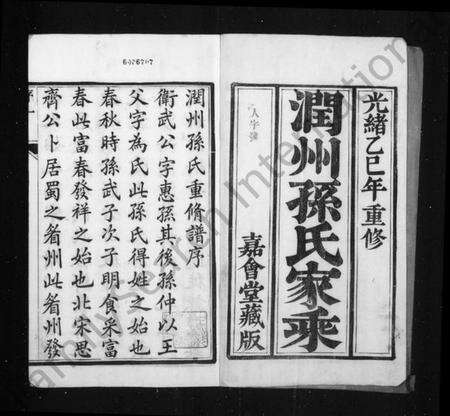 光緒乙巳年重修
潤州孫氏家乘
嘉會堂藏版
人字號
潤州孫氏重脩譜序
衛武公字惠孫其後孫仲以王
父字為氏此孫氏得姓之始也
春秋時孫武子次子明食采富
春此富春發祥之始也北宋思
齊公卜居蜀之眉州此眉州發
FamilySearch International